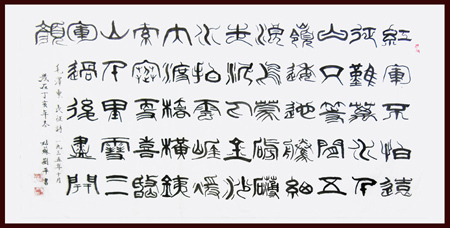 紅軍不怕遠
征難萬水千
山只等閒五
嶺逶迤騰細
浪烏蒙磅礴
走泥丸金沙
水拍雲崖暖
大渡橋橫鐵
索寒更喜岷
山千里雪三
軍過後盡開
顏
毛澤東 長征詩 一九三五年十月
歲在丁亥年冬 姑蘇